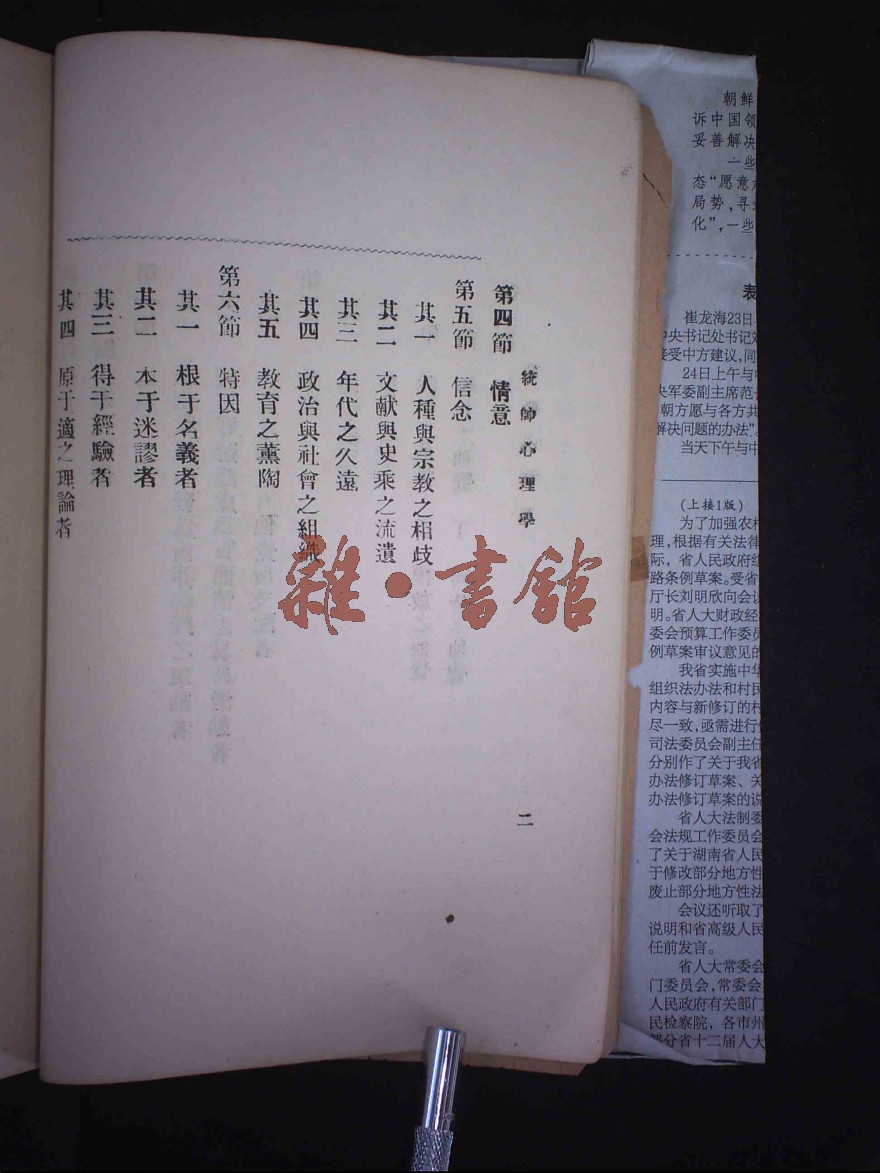 統帥心理學
二
第四節 情意
第五節 信念
其一 人種與宗教之相歧
其二 文献與史乘之流遺
其三 年代之久遠
其四 政治與社會之組織
其五 教育之薰陶
第六節 特因
其一 根于名義者
其二 本于迷謬者
其三 得于經驗者
其四 原于適之理論者
雜·書館
朝鲜
诉中国领
妥善解决
一些
态“愿意
局势，寻
化”，一些
表
崔龙海23日
中央书记处书记刘
接受中方建议，同
24日上午与
央军委副主席范
朝方愿与各方共
解决问题的办法”。
当天下午与中
（上接1版）
为了加强农村
理，根据有关法律
际，省人民政府组
路条例草案。受省
厅长刘明欣向会议
明。省人大财政经
委会预算工作委员
例草案审议意见的
我省实施中华
组织法办法和村民
内容与新修订的村
尽一致，亟需进行
司法委员会副主任
分别作了关于我省
办法修订草案、关
办法修订草案的说
省人大法制委
会法规工作委员会
了关于湖南省人民
于修改部分地方性
废止部分地方性法
会议还听取了
说明和省高级人民
任前发言。
省人大常委会
门委员会，常委会
人民政府有关部门
民检察院，各市州
部分省十二届人大